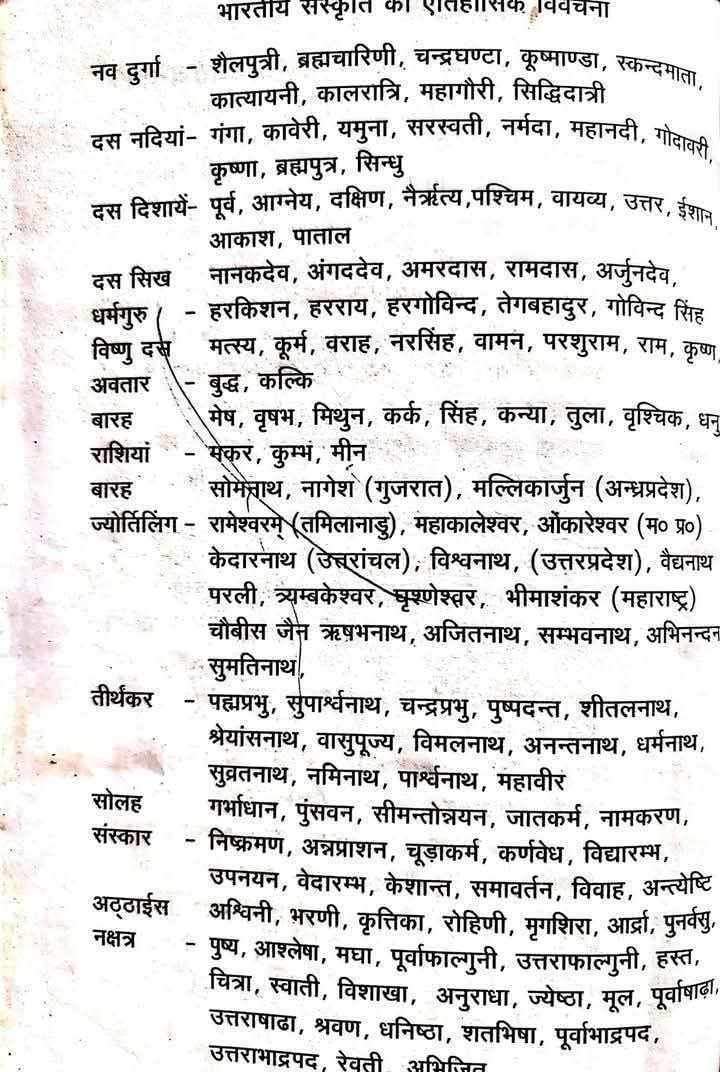 भारतीय संस्कृति की ऐतिहासिक विवेचना
नव दुर्गा – शैलपुत्री, ब्रह्मचारिणी, चन्द्रघण्टा, कूष्माण्डा, स्कन्दमाता,
कात्यायनी, कालरात्रि, महागौरी, सिद्धिदात्री
दस नदियां– गंगा, कावेरी, यमुना, सरस्वती, नर्मदा, महानदी, गोदावरी,
कृष्णा, ब्रह्मपुत्र, सिन्धु
दस दिशायें– पूर्व, आग्नेय, दक्षिण, नैर्ऋत्य,पश्चिम, वायव्य, उत्तर, ईशान,
आकाश, पाताल
दस सिख नानकदेव, अंगददेव, अमरदास, रामदास, अर्जुनदेव,
धर्मगुरु – हरकिशन, हरराय, हरगोविन्द, तेगबहादुर, गोविन्द सिंह
विष्णु दस मत्स्य, कूर्म, वराह, नरसिंह, वामन, परशुराम, राम, कृष्ण,
अवतार – बुद्ध, कल्कि
बारह मेष, वृषभ, मिथुन, कर्क, सिंह, कन्या, तुला, वृश्चिक, धनु
राशियां – मकर, कुम्भ, मीन
बारह सोमनाथ, नागेश (गुजरात), मल्लिकार्जुन (अन्ध्रप्रदेश),
ज्योर्तिलिंग – रामेश्वरम् (तमिलानाडु), महाकालेश्वर, ओंकारेश्वर (म० प्र०)
केदारनाथ (उत्तरांचल), विश्वनाथ, (उत्तरप्रदेश), वैद्यनाथ
परली, त्र्यम्बकेश्वर, घृश्णेश्वर, भीमाशंकर (महाराष्ट्र)
चौबीस जैन ऋषभनाथ, अजितनाथ, सम्भवनाथ, अभिनन्दन
सुमतिनाथ,
तीर्थंकर – पद्मप्रभु, सुपार्श्वनाथ, चन्द्रप्रभु, पुष्पदन्त, शीतलनाथ,
श्रेयांसनाथ, वासुपूज्य, विमलनाथ, अनन्तनाथ, धर्मनाथ,
सुव्रतनाथ, नमिनाथ, पार्श्वनाथ, महावीर
सोलह गर्भाधान, पुंसवन, सीमन्तोन्नयन, जातकर्म, नामकरण,
संस्कार – निष्क्रमण, अन्नप्राशन, चूड़ाकर्म, कर्णवेध, विद्यारम्भ,
उपनयन, वेदारम्भ, केशान्त, समावर्तन, विवाह, अन्त्येष्टि
अठ्ठाईस अश्विनी, भरणी, कृत्तिका, रोहिणी, मृगशिरा, आर्द्रा, पुनर्वसु,
नक्षत्र – पुष्य, आश्लेषा, मघा, पूर्वाफाल्गुनी, उत्तराफाल्गुनी, हस्त,
चित्रा, स्वाती, विशाखा, अनुराधा, ज्येष्ठा, मूल, पूर्वाषाढ़ा,
उत्तराषाढा, श्रवण, धनिष्ठा, शतभिषा, पूर्वाभाद्रपद,
उत्तराभाद्रपद, रेवती, अभिजित